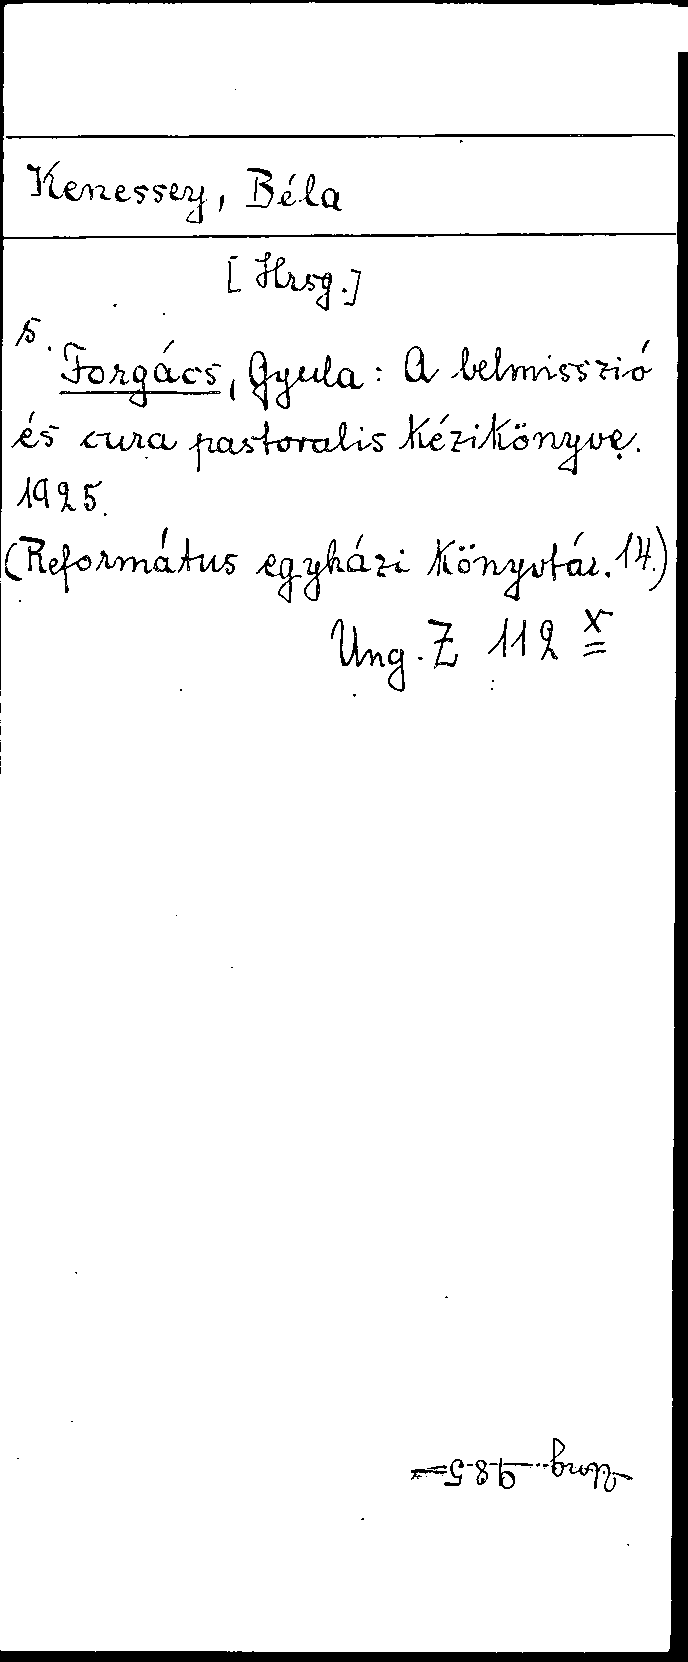 Kenessey, Béla
[Hrsg.]
s.
Forgács, Gyula: A belmisszió
és cura pastoralis kézikönyve.
1925.
(Református egyházi könyvtár. 14.)
Ung. Z 112 x
Ung. 985